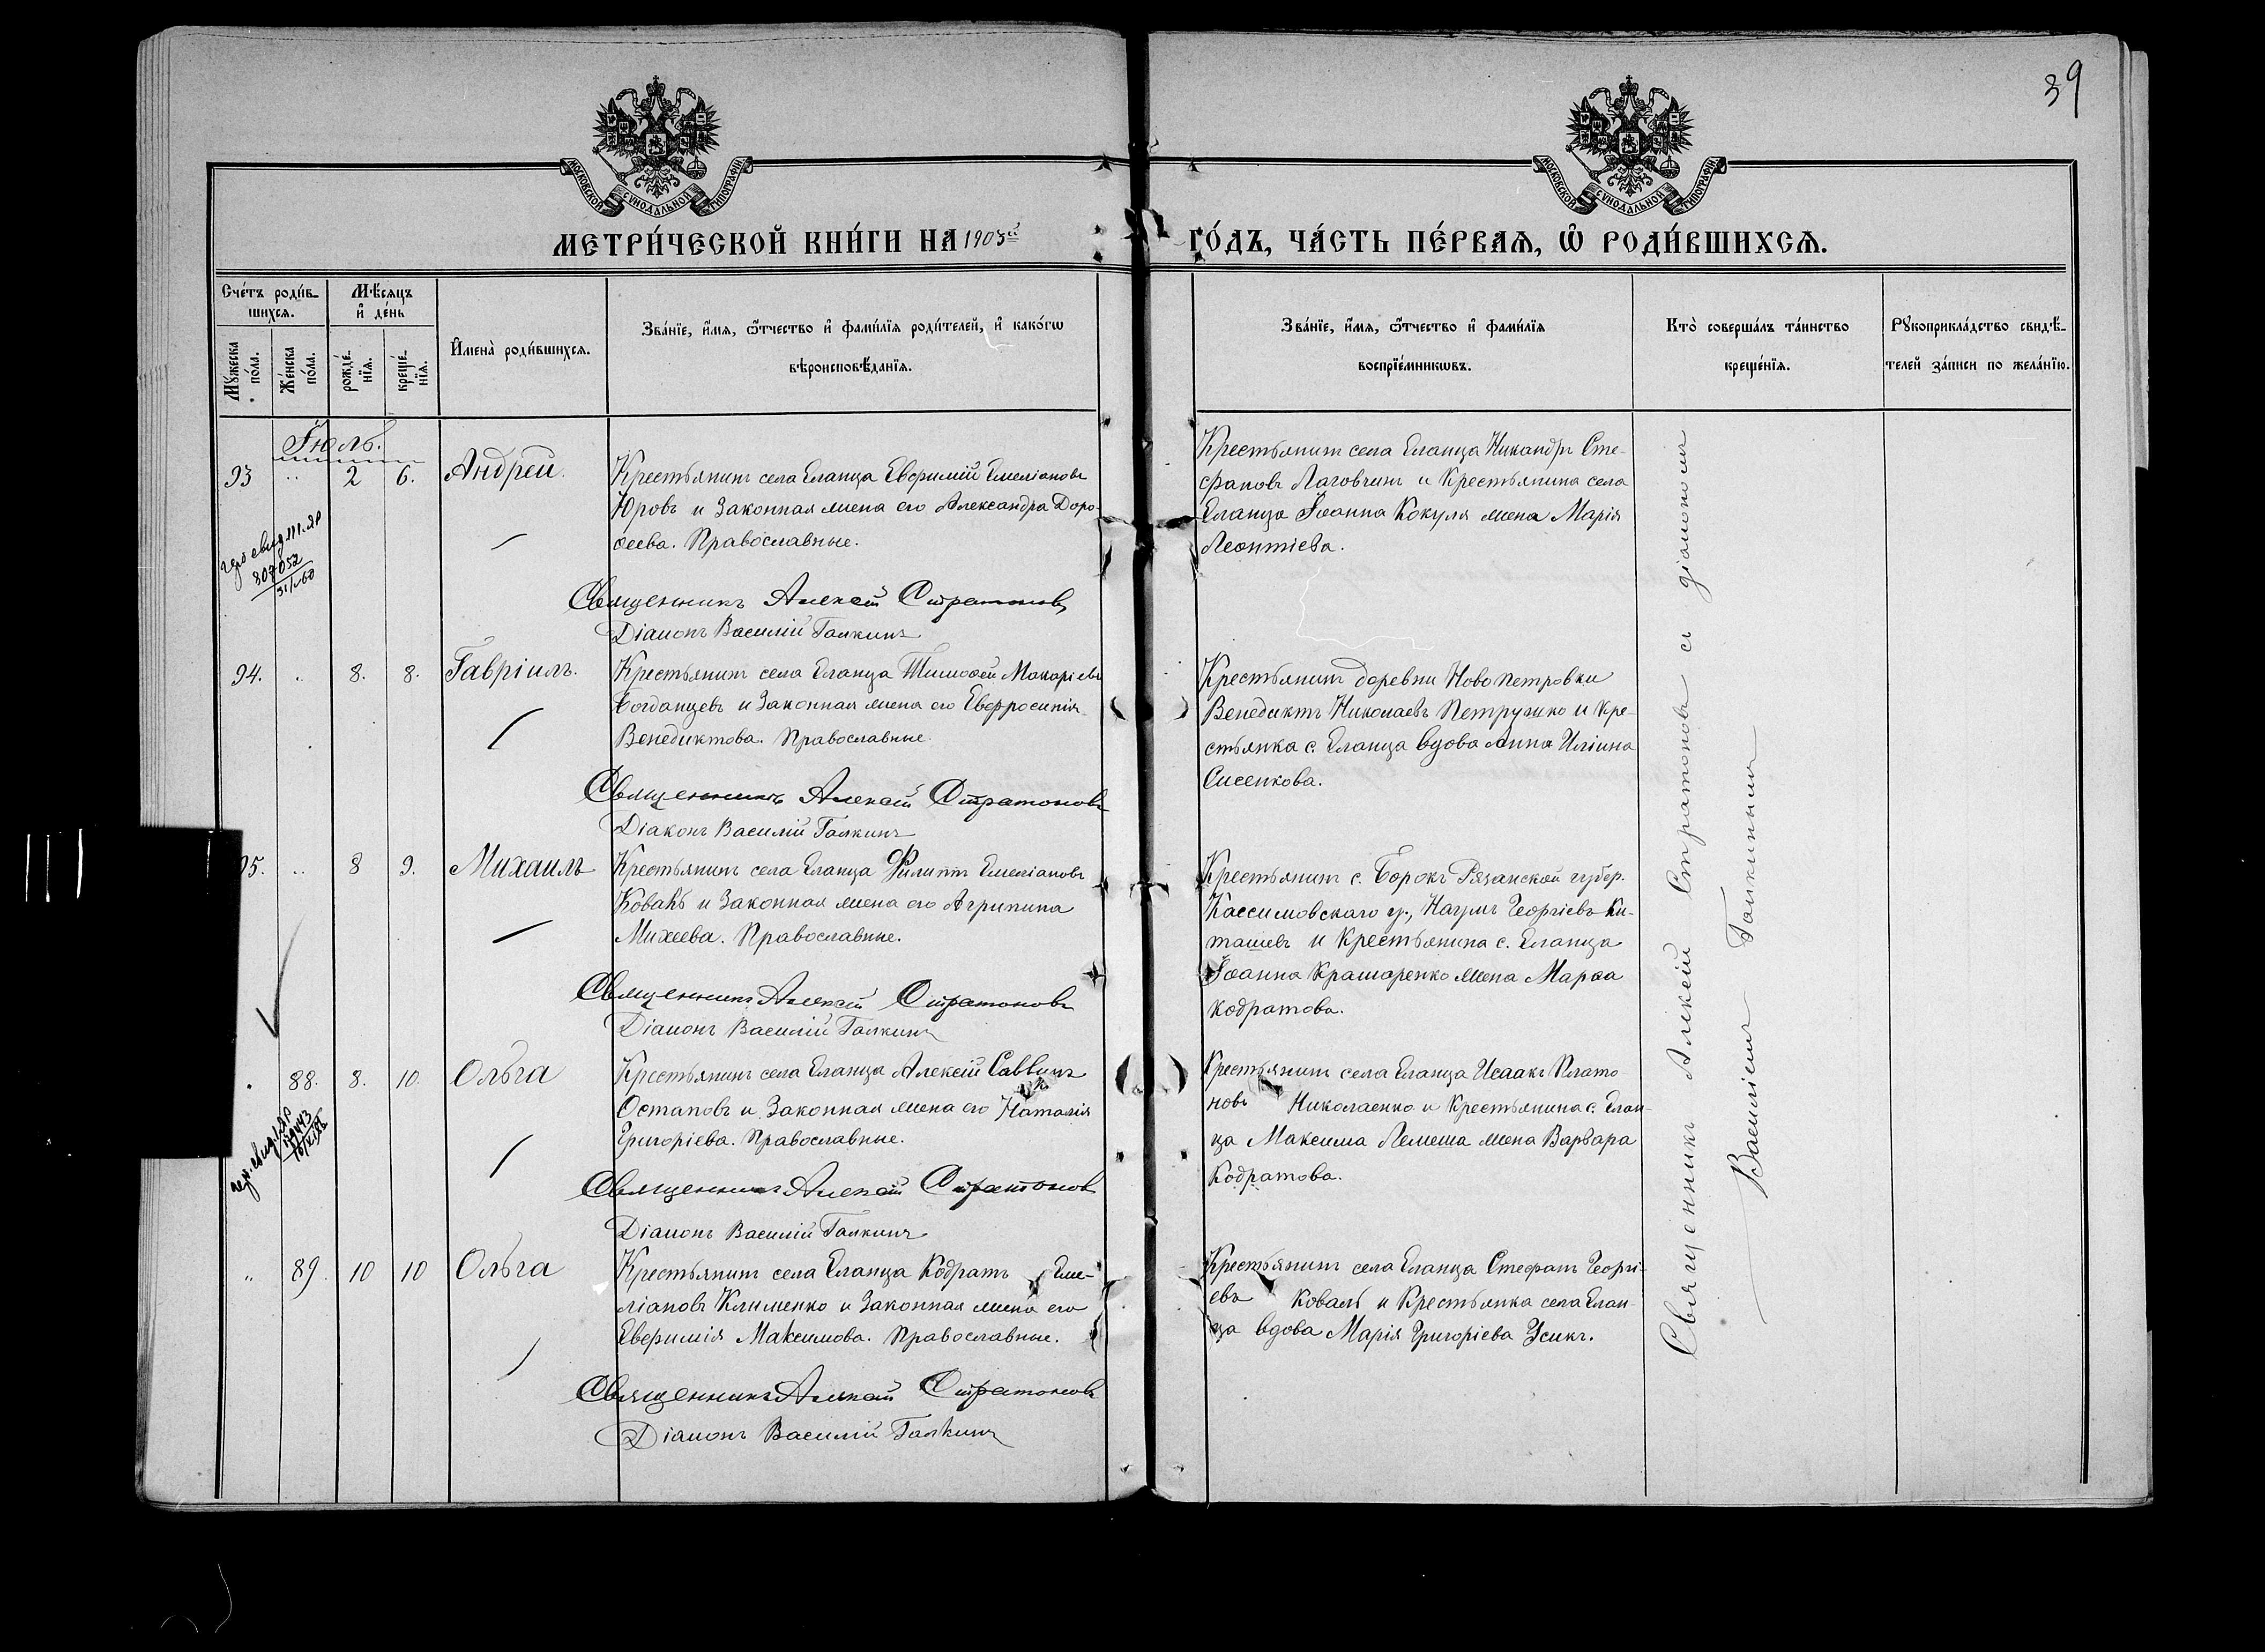 39
МОСКОВСКОЙ СѴНОДАЛЬНОЙ ТИПОГРАФІИ
МОСКОВСКОЙ СѴНОДАЛЬНОЙ ТИПОГРАФІИ
МЕТРИ́ЧЕСКОЙ КНИ́ГИ НА 1903й ГО́ДЪ, ЧА́СТЬ ПЕ́РВАѦ, Ѡ҆ РОДИ́ВШИХСѦ.
Сче́тъ роди́в-
шихсѧ.
Мѣ́сѧцъ
и҆ де́нь
Мꙋ́жеска
по́ла.
Же́нска
по́ла.
рожде́-
нїѧ.
креще́-
нїѧ.
И҆мена̀ роди́вшихсѧ.
Зва́нїе, и҆́мѧ, ѻ҆́тчество и҆ фами́лїѧ роди́телей, и҆ како́гѡ
вѣроисповѣ́данїѧ.
Зва́нїе, и҆́мѧ, ѻ҆́тчество и҆ фами́лїѧ
воспрїе́мникѡвъ.
Кто̀ соверша́лъ та́инство
креще́нїѧ.
Рꙋкоприкла́дство свидѣ́-
телей за́писи по жела́нїю.
Іюль.
93 " 2 6. Андрей.
Крестьянинъ села Еланца Евфимій Емеліановъ
Юровъ и Законная жена его Александра Доро-
ѳеева. Православные.
Священникъ Алексій Стратоновъ
Діаконъ Василій Галкинъ
Крестьянинъ села Еланца Никандръ Сте-
фановъ Лаговчинъ и Крестьянина села
Еланца Іоанна Кокуля жена Марія
Леонтіева.
807052
94. " 8. 8. Гавріилъ.
Крестьянинъ села Еланца Тимоѳей Макаріевъ
Богданцевъ и Законная жена его Евфросинія
Венедиктова. Православные.
Священникъ Алексій Стратоновъ
Діаконъ Василій Галкинъ
Крестьянинъ деревни Ново петровки
Венедиктъ Николаевъ Петрушко и Кре-
стьянка с. Еланца вдова Анна Иліина
Сисенкова.
95. " 8 9. Михаилъ
Крестьянинъ села Еланца Филиппъ Емеліановъ
Коваль и Законная жена его Агрипина
Михеева. Православные.
Священникъ Алексій Стратоновъ
Діаконъ Василій Галкинъ
Крестьянинъ с. Борокъ Рязанской губер.
Кассимовскаго у., Наумъ Георгіевъ Ки-
ташевъ и Крестьянина с. Еланца
Іоанна Крамаренко жена Марѳа
Кодратова.
" 88. 8. 10. Ольга
Крестьянинъ села Еланца Алексій Саввинъ
Остаповъ и Законная жена его Наталія
Григоріева. Православные.
Священникъ Алексій Стратоновъ
Діаконъ Василій Галкинъ
Крестьянинъ села Еланца Исаакъ Плато-
новъ Николаенко и Крестьянина с. Елан-
ца Максима Лемеша жена Варвара
Кодратова.
" 89. 10 10 Ольга
Крестьянинъ села Еланца Кодратъ Еме-
ліановъ Клименко и Законная жена его
Евфимія Максимова. Православные.
Священникъ Алексій Стратоновъ
Діаконъ Василій Галкинъ
Крестьянинъ села Еланца Стефанъ Георгі-
евъ Коваль и Крестьянка села Елан-
ца вдова Марія Григоріева Усикъ.
Священникъ Алексій Стратоновъ съ діакономъ
Василіемъ Галкинымъ